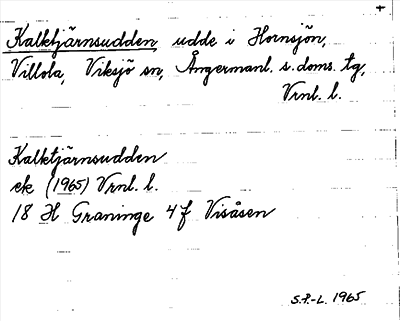 Kalktjärnsudden, udde i Hornsjön,
Villola, Viksjö sn, Ångermanl. s. doms. tg,
Vrnl. l.
Kalktjärnsudden
ek (1965) Vrnl. l.
18 H Graninge 4 f Visåsen
S.P.-L. 1965